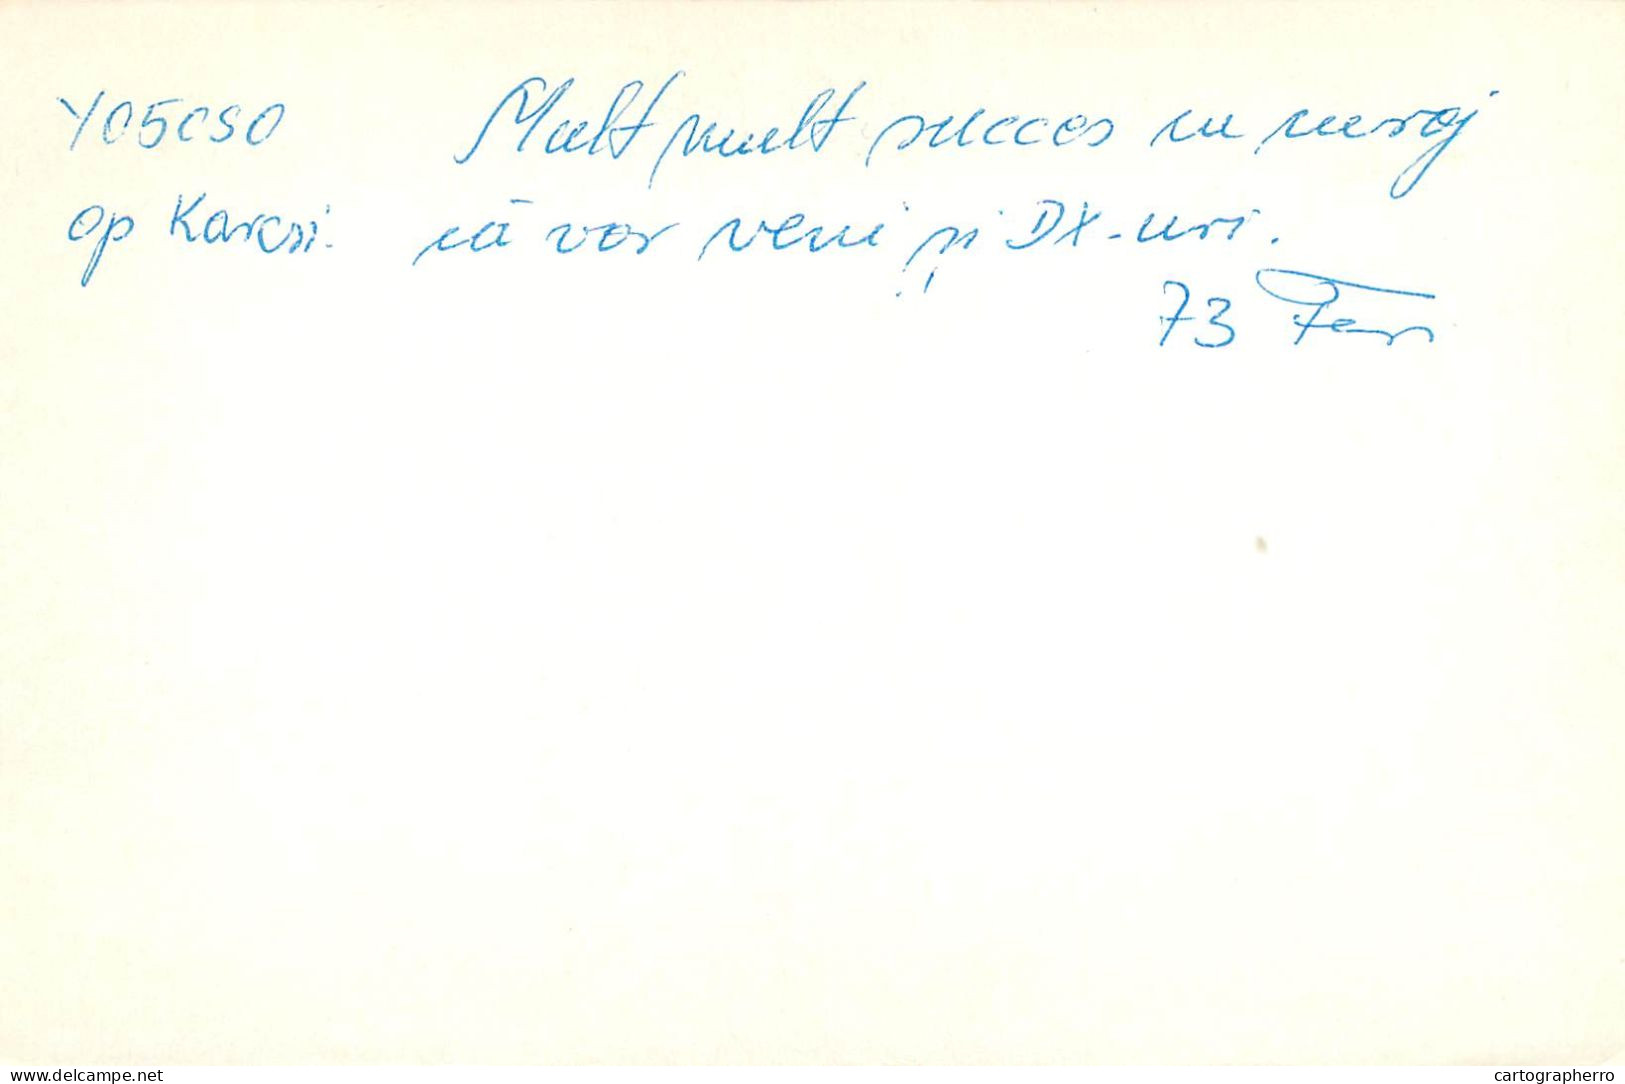 YO5CSO Mult mult succes
op Karcsi. că vor veni și DX-uri.
73 Feri
delcampe.net
cartographerro